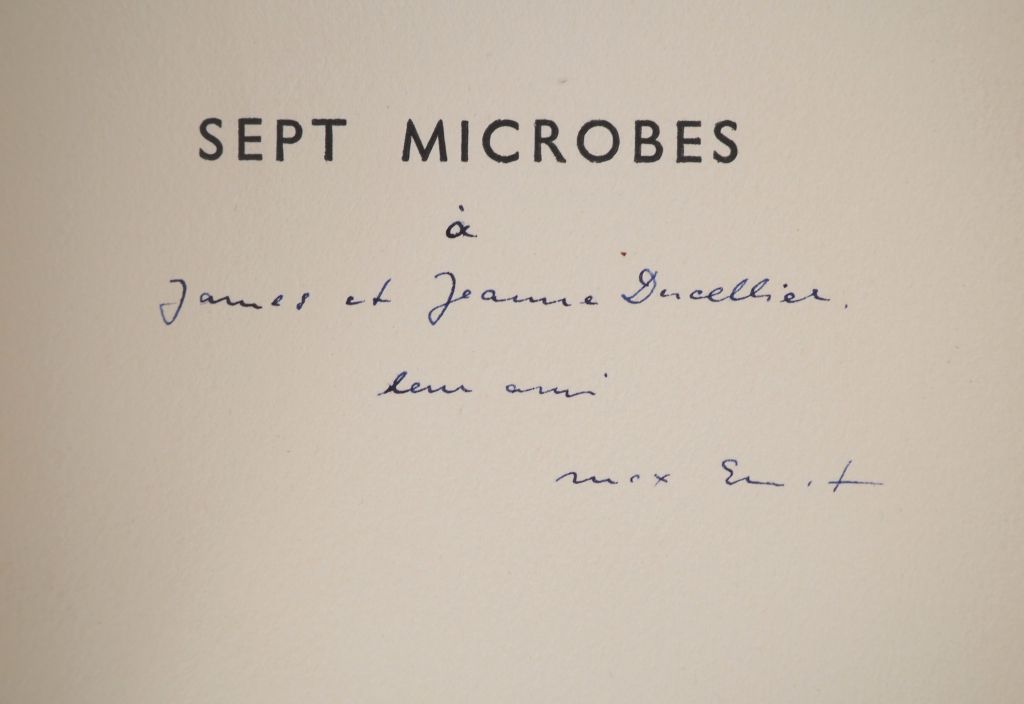 SEPT MICROBES
à
James et Jeanne Ducellier.
leur ami
max Ernst